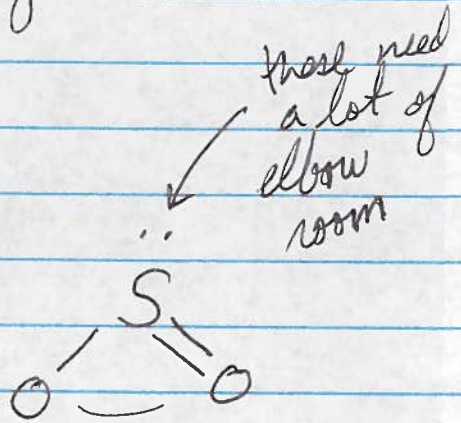 these need
a lot of
elbow
room
..
S
O O